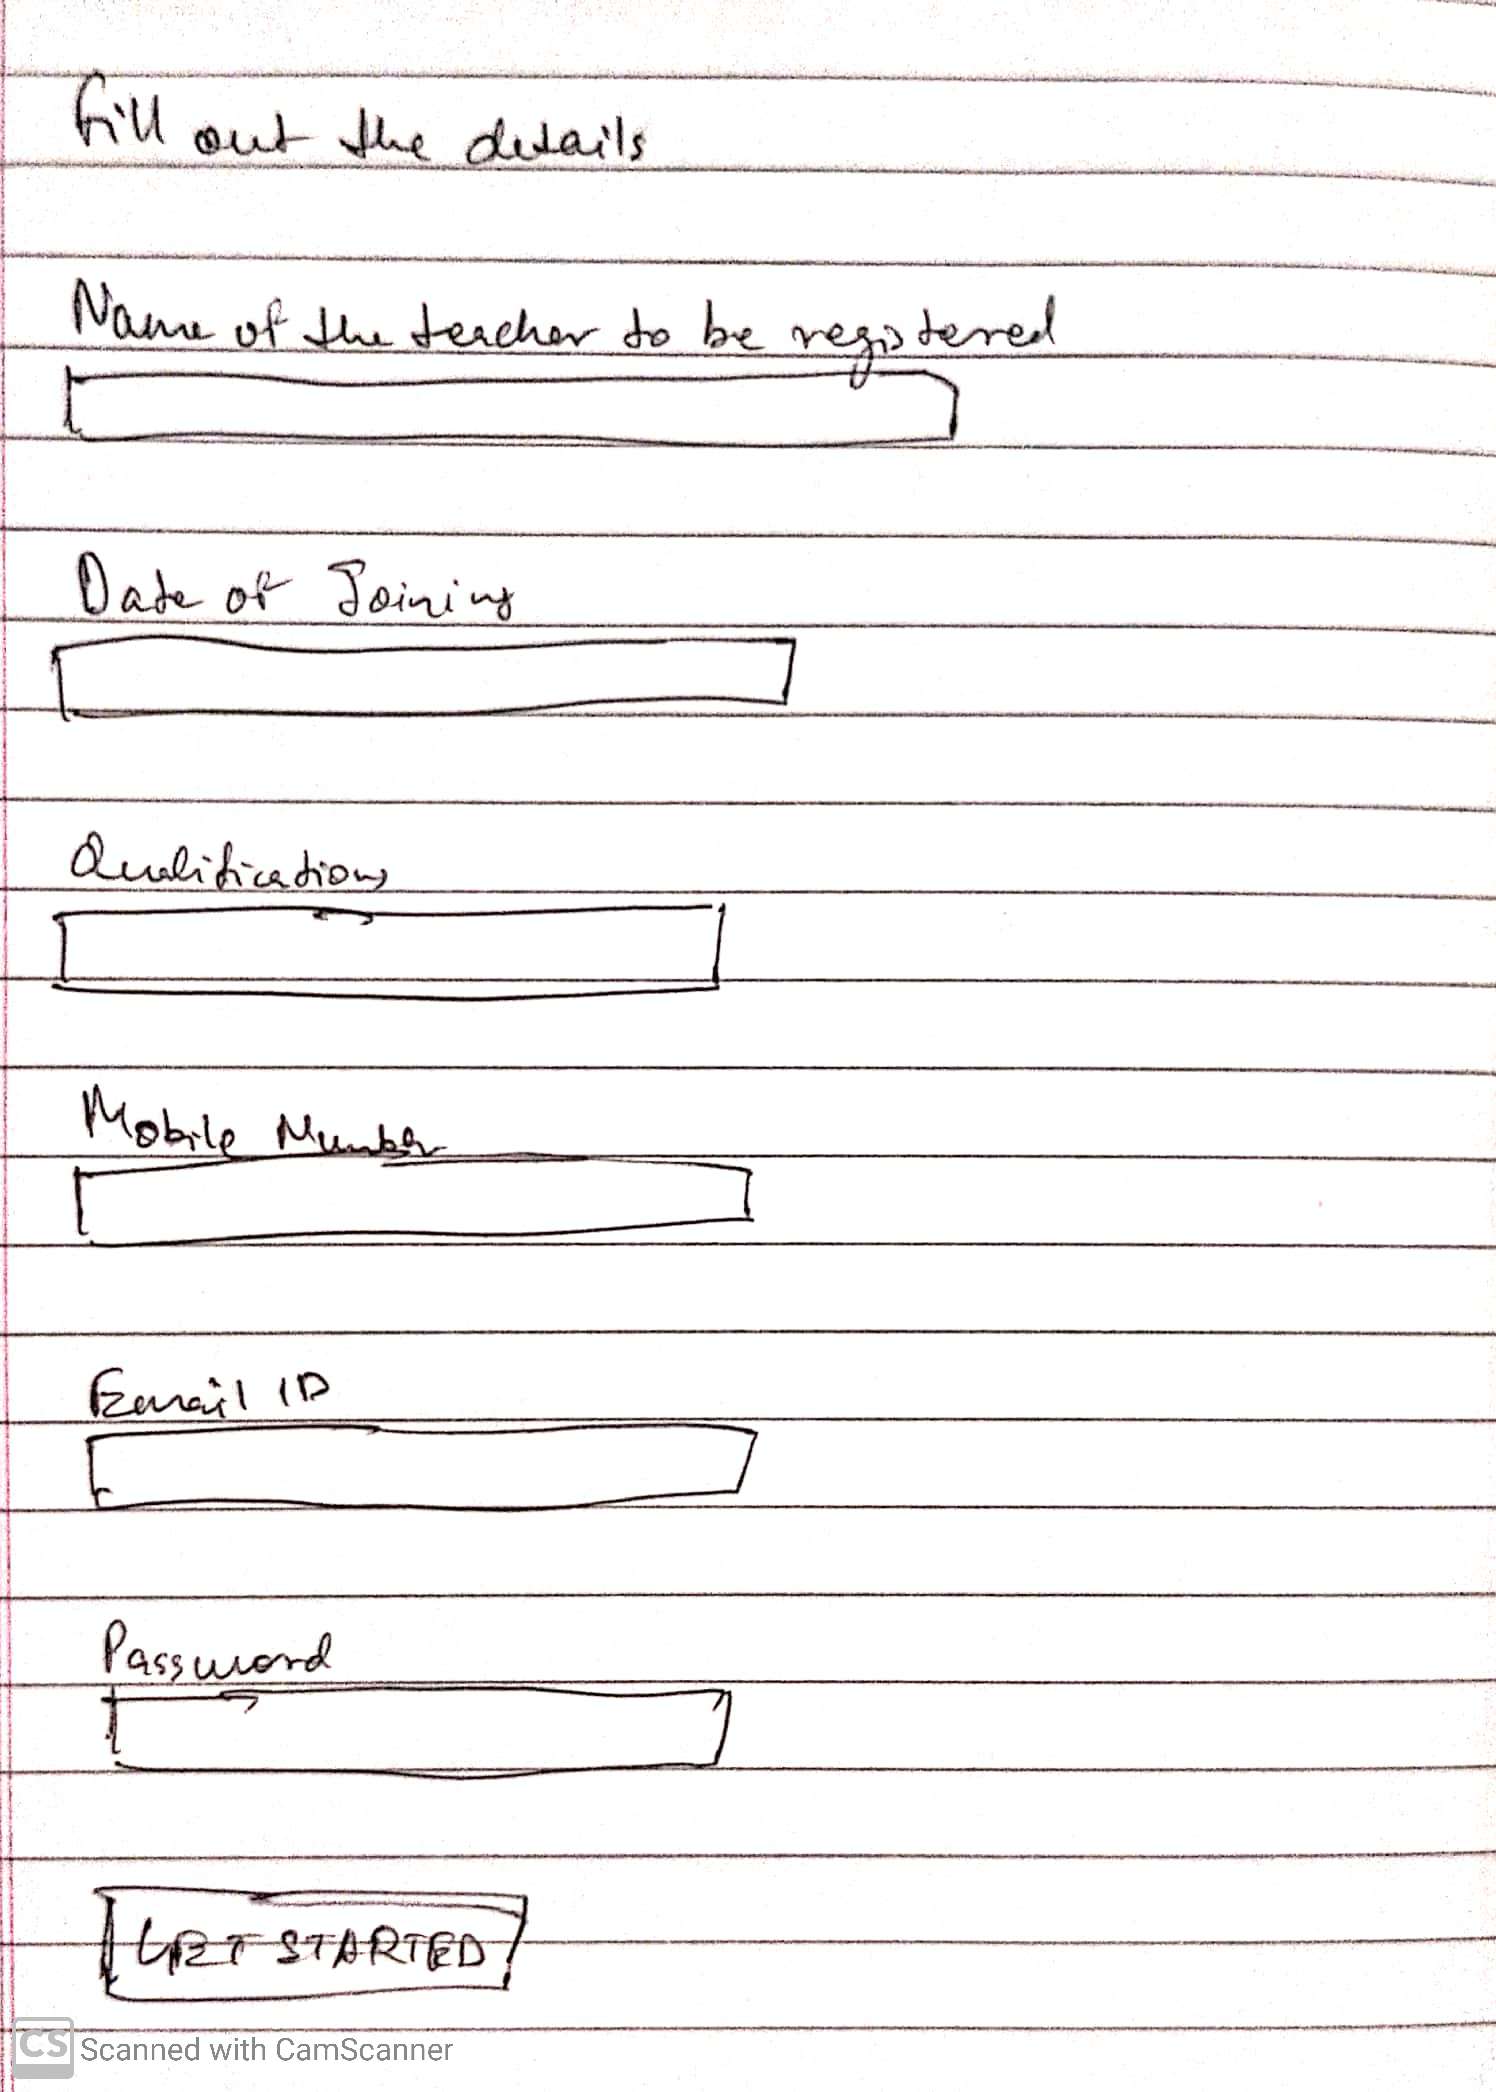 Fill out the details
Name of the teacher to be registered
Date of Joining
Qualifications
Mobile Number
Email ID
Password
GET STARTED
CS Scanned with CamScanner